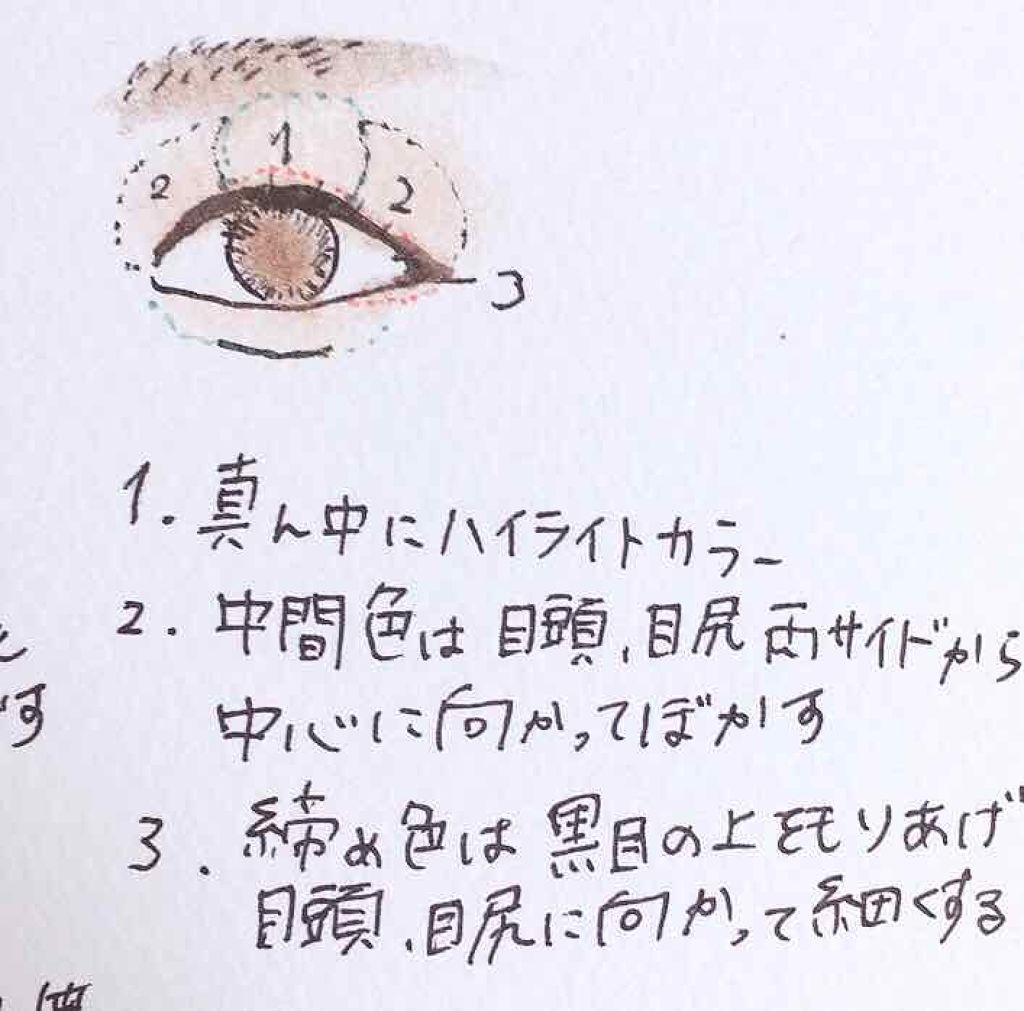 1
2
2
3
1. 真ん中にハイライトカラー
2. 中間色は目頭、目尻両サイドから
中心に向かってぼかす
3. 締め色は黒目の上をもりあげ
目頭、目尻に向かって細くする
す